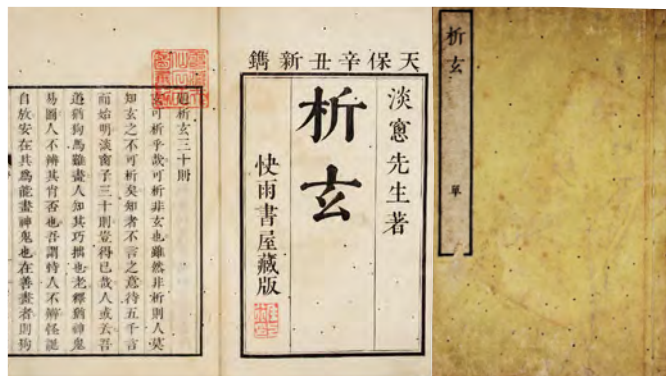 析玄
單
天保辛丑新鐫
淡窻先生著
析玄
快雨書屋藏版
析玄三十則
玄可析乎哉可析非玄也雖然非析則人莫
知玄之不可析矣知者不言之意待五千言
而始明淡窗子三十則豈得已哉人或云吾
道猶狗馬雖畫人知其巧拙也老釋猶神鬼
易圖人不辨其肖否也吾謂特人不辨怪誕
自放安在其爲能畫神鬼也在善畫者則狗